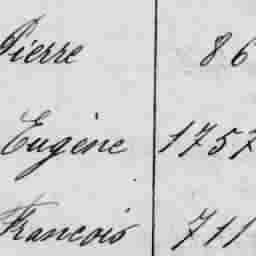 Pierre 86
Eugène 1757
François 711